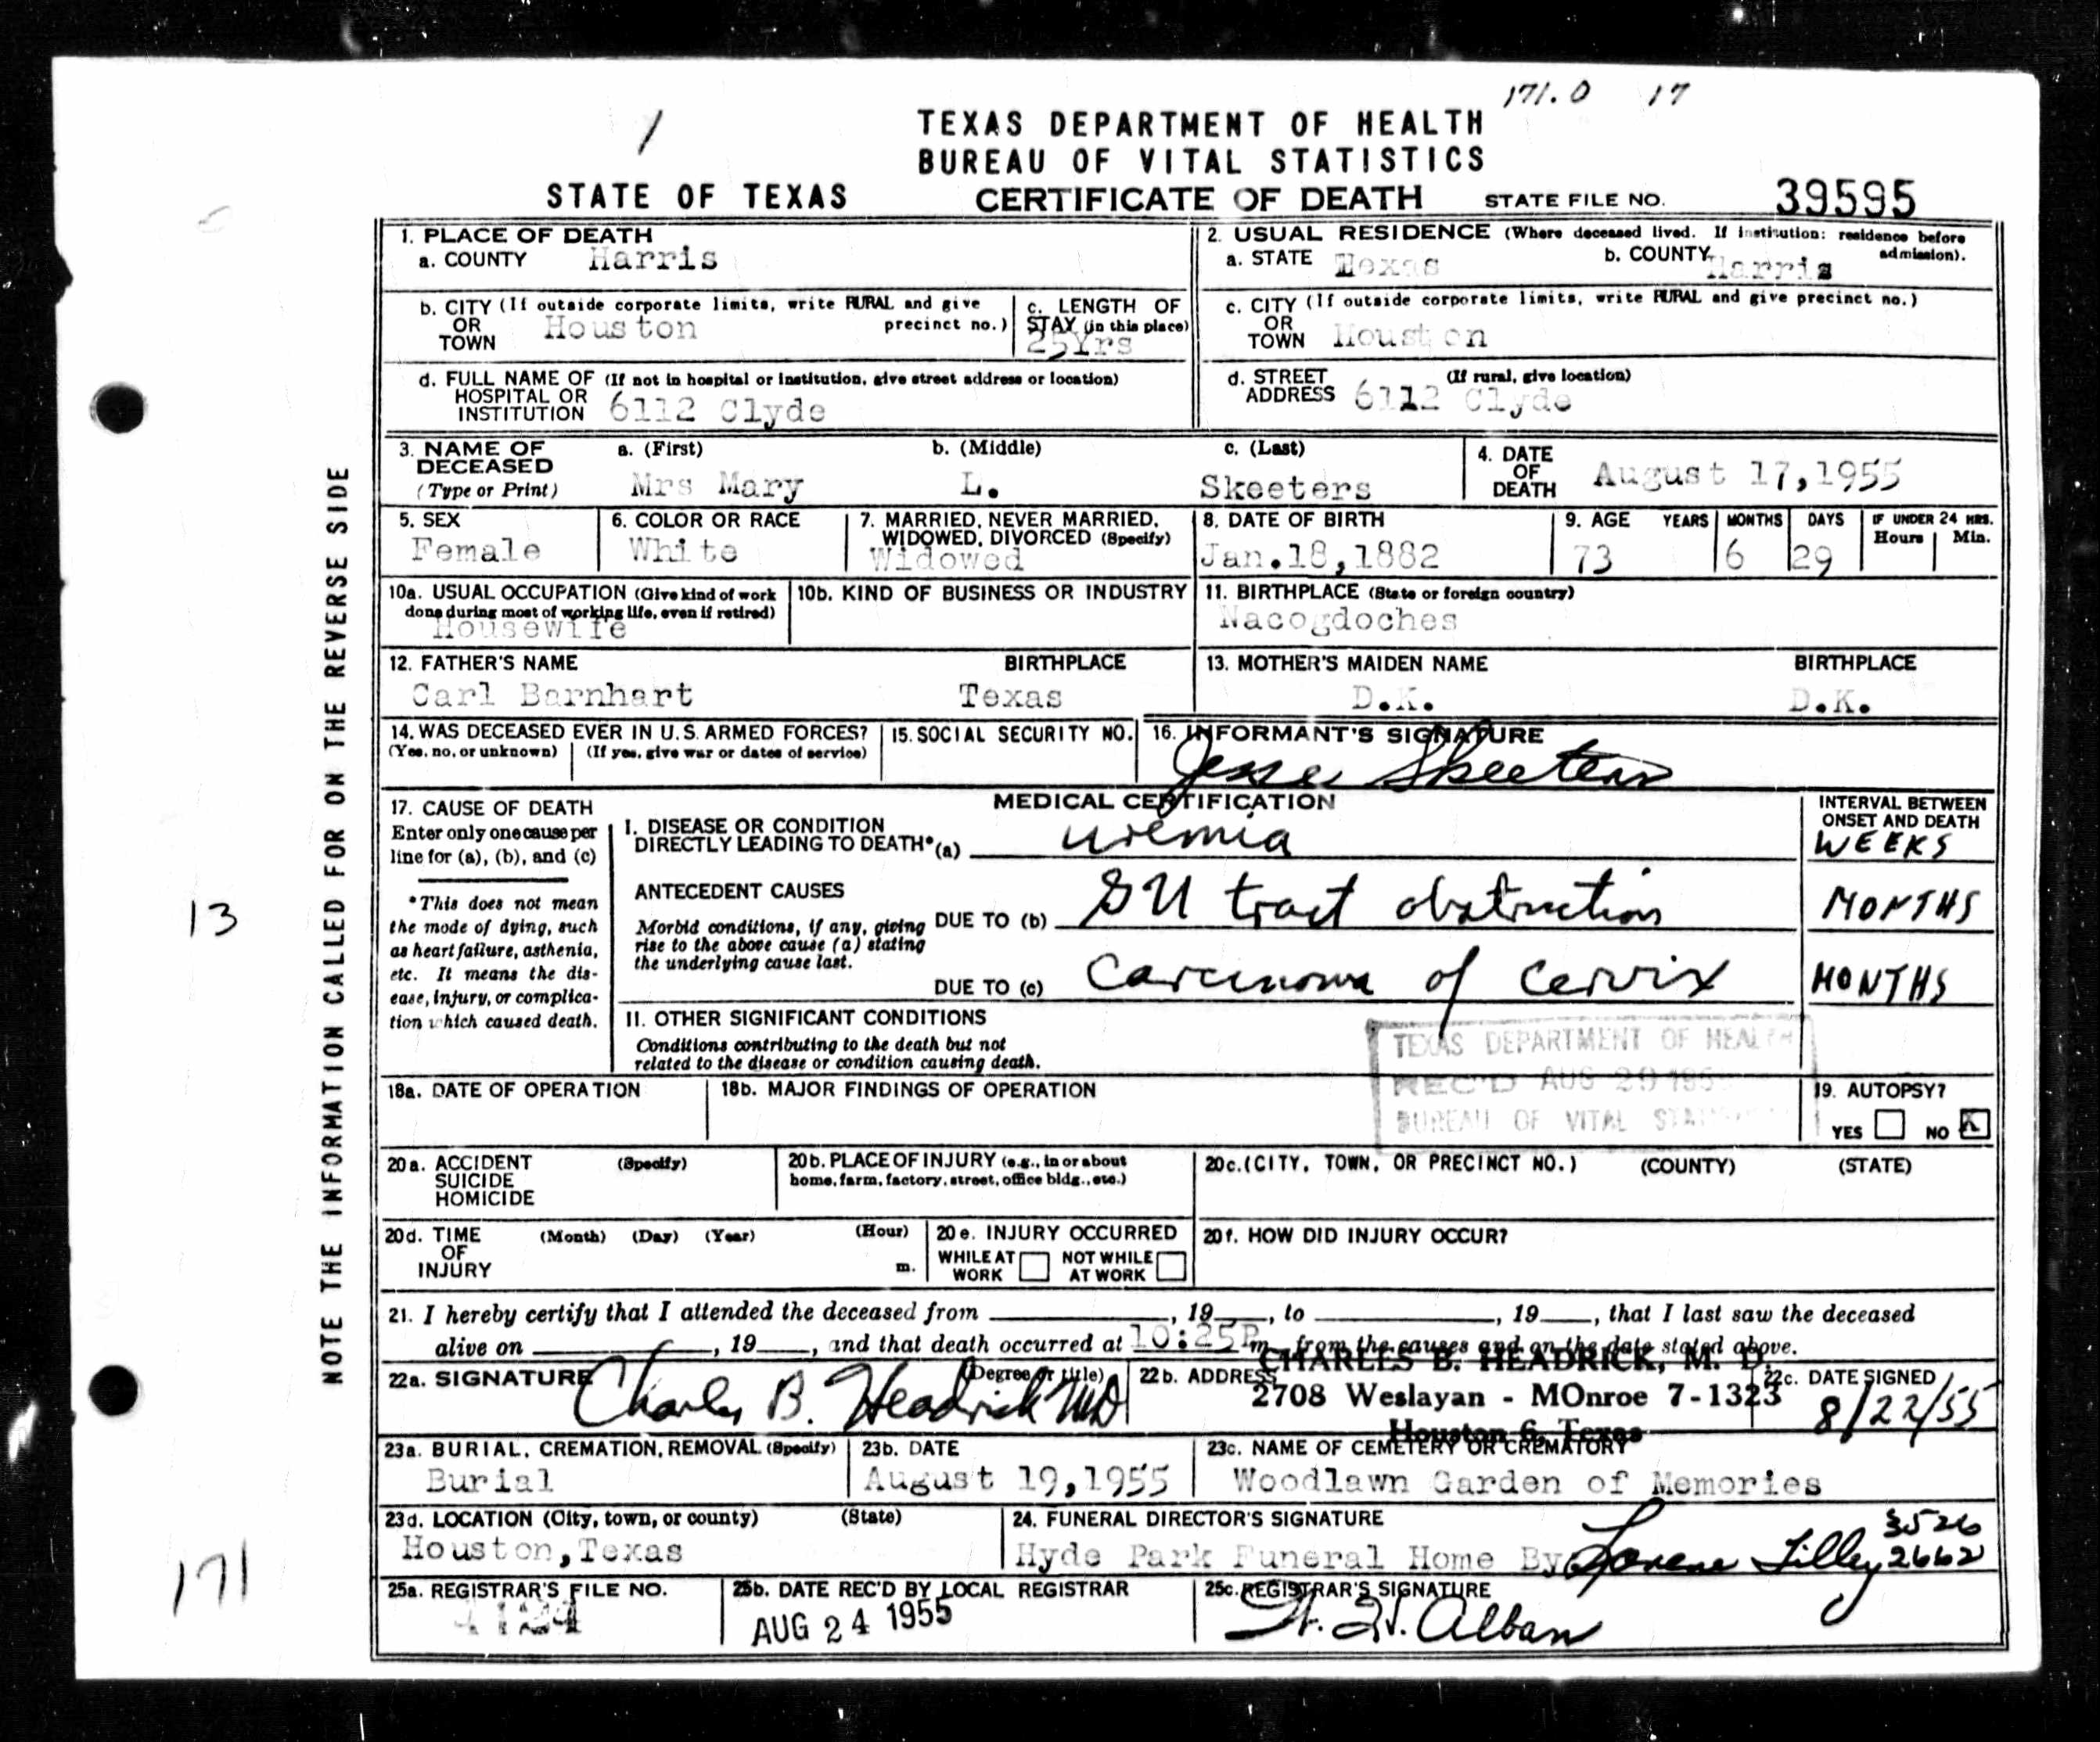 171.0 17
1
TEXAS DEPARTMENT OF HEALTH
BUREAU OF VITAL STATISTICS
STATE OF TEXAS CERTIFICATE OF DEATH STATE FILE NO. 39595
NOTE THE INFORMATION CALLED FOR ON THE REVERSE SIDE
1. PLACE OF DEATH
a. COUNTY Harris
2. USUAL RESIDENCE (Where deceased lived. If institution: residence before admission).
a. STATE Texas b. COUNTY Harris
b. CITY (If outside corporate limits, write RURAL and give precinct no.)
OR TOWN Houston
c. LENGTH OF STAY (in this place) 25Yrs
c. CITY (If outside corporate limits, write RURAL and give precinct no.)
OR TOWN Houston
d. FULL NAME OF (If not in hospital or institution, give street address or location)
HOSPITAL OR INSTITUTION 6112 Clyde
d. STREET ADDRESS (If rural, give location) 6112 Clyde
3. NAME OF DECEASED (Type or Print)
a. (First) b. (Middle) c. (Last)
Mrs Mary L. Skeeters
4. DATE OF DEATH August 17,1955
5. SEX Female
6. COLOR OR RACE White
7. MARRIED, NEVER MARRIED, WIDOWED, DIVORCED (Specify) Widowed
8. DATE OF BIRTH Jan.18,1882
9. AGE YEARS MONTHS DAYS IF UNDER 24 HRS. Hours Min.
73 6 29
10a. USUAL OCCUPATION (Give kind of work done during most of working life, even if retired)
Housewife
10b. KIND OF BUSINESS OR INDUSTRY
11. BIRTHPLACE (State or foreign country)
Nacogdoches
12. FATHER'S NAME BIRTHPLACE
Carl Barnhart Texas
13. MOTHER'S MAIDEN NAME BIRTHPLACE
D.K. D.K.
14. WAS DECEASED EVER IN U.S. ARMED FORCES?
(Yes, no, or unknown) (If yes, give war or dates of service)
15. SOCIAL SECURITY NO.
16. INFORMANT'S SIGNATURE
Jesse Skeeters
17. CAUSE OF DEATH
Enter only one cause per line for (a), (b), and (c)
*This does not mean the mode of dying, such as heart failure, asthenia, etc. It means the disease, injury, or complication which caused death.
MEDICAL CERTIFICATION
INTERVAL BETWEEN ONSET AND DEATH
I. DISEASE OR CONDITION DIRECTLY LEADING TO DEATH* (a) uremia WEEKS
ANTECEDENT CAUSES
Morbid conditions, if any, giving rise to the above cause (a) stating the underlying cause last.
DUE TO (b) GU tract obstruction MONTHS
DUE TO (c) Carcinoma of Cervix MONTHS
13
II. OTHER SIGNIFICANT CONDITIONS
Conditions contributing to the death but not related to the disease or condition causing death.
TEXAS DEPARTMENT OF HEALTH
REC'D AUG 29 195
BUREAU OF VITAL
18a. DATE OF OPERATION
18b. MAJOR FINDINGS OF OPERATION
19. AUTOPSY?
YES NO X
20a. ACCIDENT SUICIDE HOMICIDE (Specify)
20b. PLACE OF INJURY (e.g., in or about home, farm, factory, street, office bldg., etc.)
20c. (CITY, TOWN, OR PRECINCT NO.) (COUNTY) (STATE)
20d. TIME OF INJURY (Month) (Day) (Year) (Hour) m.
20e. INJURY OCCURRED
WHILE AT WORK NOT WHILE AT WORK
20f. HOW DID INJURY OCCUR?
21. I hereby certify that I attended the deceased from , 19 , to , 19 , that I last saw the deceased
alive on , 19 , and that death occurred at 10:25P m., from the causes and on the date stated above.
22a. SIGNATURE (Degree or title)
Charles B. Headrick MD
22b. ADDRESS
CHARLES B. HEADRICK, M. D.
2708 Weslayan - MOnroe 7-1323
Houston 6, Texas
22c. DATE SIGNED
8/22/55
23a. BURIAL, CREMATION, REMOVAL (Specify)
Burial
23b. DATE
August 19,1955
23c. NAME OF CEMETERY OR CREMATORY
Woodlawn Garden of Memories
23d. LOCATION (City, town, or county) (State)
Houston,Texas
24. FUNERAL DIRECTOR'S SIGNATURE
Hyde Park Funeral Home By Lorene Lilley
3526
2662
171
25a. REGISTRAR'S FILE NO.
4124
25b. DATE REC'D BY LOCAL REGISTRAR
AUG 24 1955
25c. REGISTRAR'S SIGNATURE
Alban